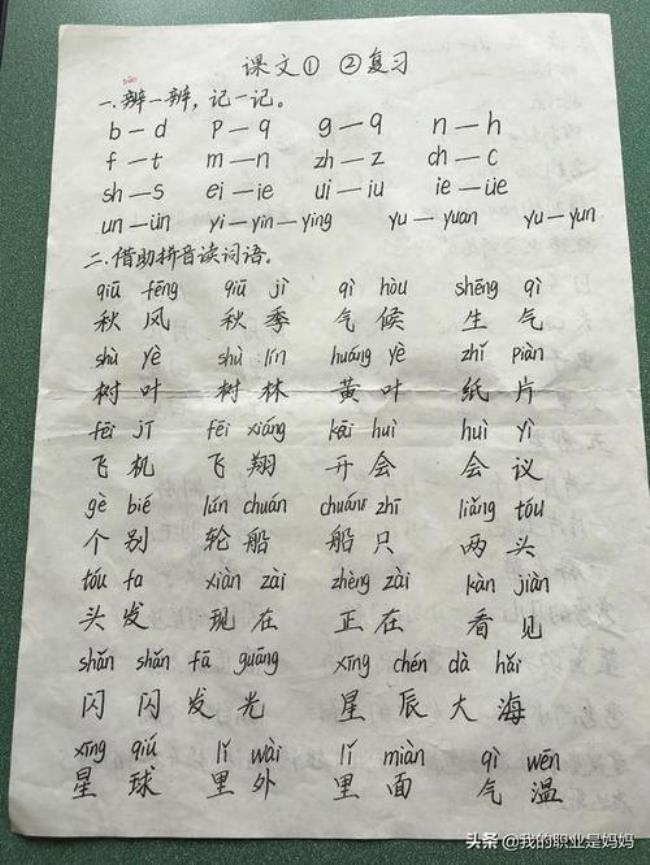 课文① ②复习
一.辨一辨，记一记。
b—d p—q g—q n—h
f—t m—n zh—z ch—c
sh—s ei—ie ui—iu ie—üe
un—ün yi—yin—ying yu—yuan yu—yun
二.借助拼音读词语。
qiū fēng qiū jì qì hòu shēng qì
秋风 秋季 气候 生气
shù yè shù lín huáng yè zhǐ piàn
树叶 树林 黄叶 纸片
fēi jī fēi xiáng kāi huì huì yì
飞机 飞翔 开会 会议
gè bié lún chuán chuán zhī liǎng tóu
个别 轮船 船只 两头
tóu fa xiàn zài zhèng zài kàn jiàn
头发 现在 正在 看见
shǎn shǎn fā guāng xīng chén dà hǎi
闪闪发光 星辰大海
xīng qiú lǐ wài lǐ miàn qì wēn
星球 里外 里面 气温
头条 @我的职业是妈妈